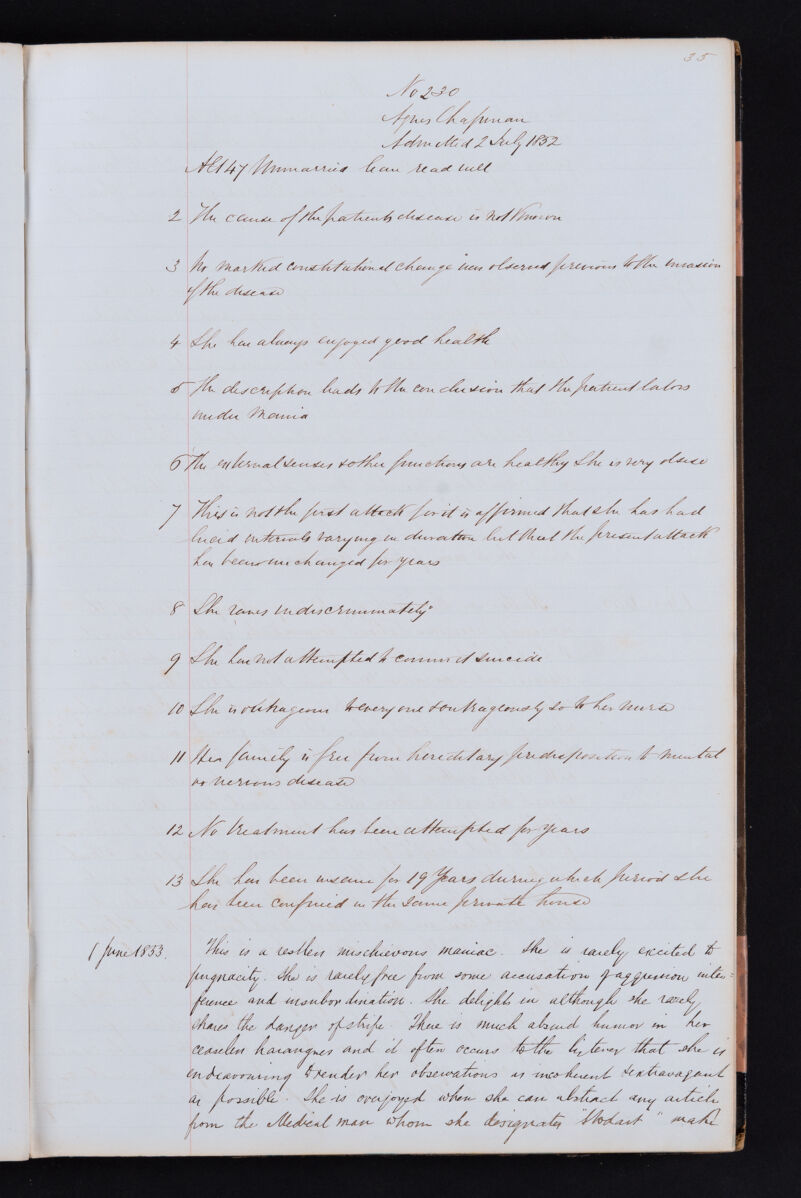 35
No 230
Agnes Chapman
Admitted 2 July 1852
Aet 47 Unmarried Can read well
2 The cause of the patients disease is not known
3 No marked constitutional change was observed previous to the invasion
of the disease
4 She has always enjoyed good health
5 The description leads to the conclusion that the patient labors
under Mania
6 The external senses & other functions are healthy She is very obese
7 This is not the first attack for it is affirmed that she has had
lucid intervals varying in duration but that the present attack
has been unchanged for years
8 She raves indiscriminately
9 She has not attempted to commit suicide
10 She is outrageous to every one & outrageously so to her nurse
11 Her family is free from hereditary predisposition to mental
or nervous disease
12 No treatment has been attempted for years
13 She has been insane for 19 Years during which period she
has been confined in the same private house
1 June 1853. This is a restless mischievous maniac. She is rarely excited to
pugnacity. She is rarely free from some accusation of aggression inter=
ference and insubordination. She delights in although she rarely
shares the danger of strife. There is much absurd humor in her
ceaseless harangues and it often occurs to the listener that she is
endeavouring to render her observations as incoherent & extravagant
as possible. She is overjoyed when she can abstract any article
from the Medical man whom she designates "Stodart" make